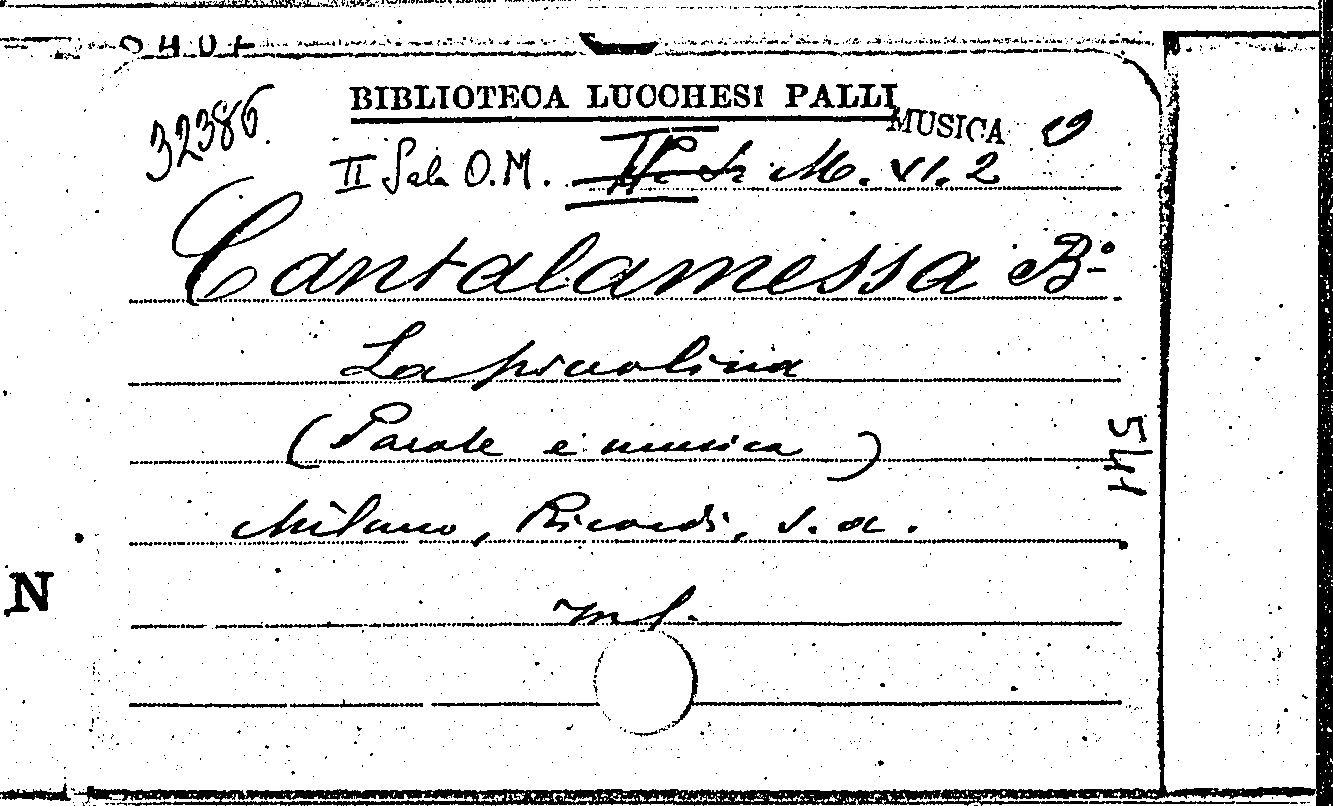 BIBLIOTECA LUCCHESI PALLI
MUSICA
32386
II Sala O.M. M. VI. 2
Cantalamessa B.
La piccolina
(Parole e musica)
Milano, Ricordi, s. a.
544
N